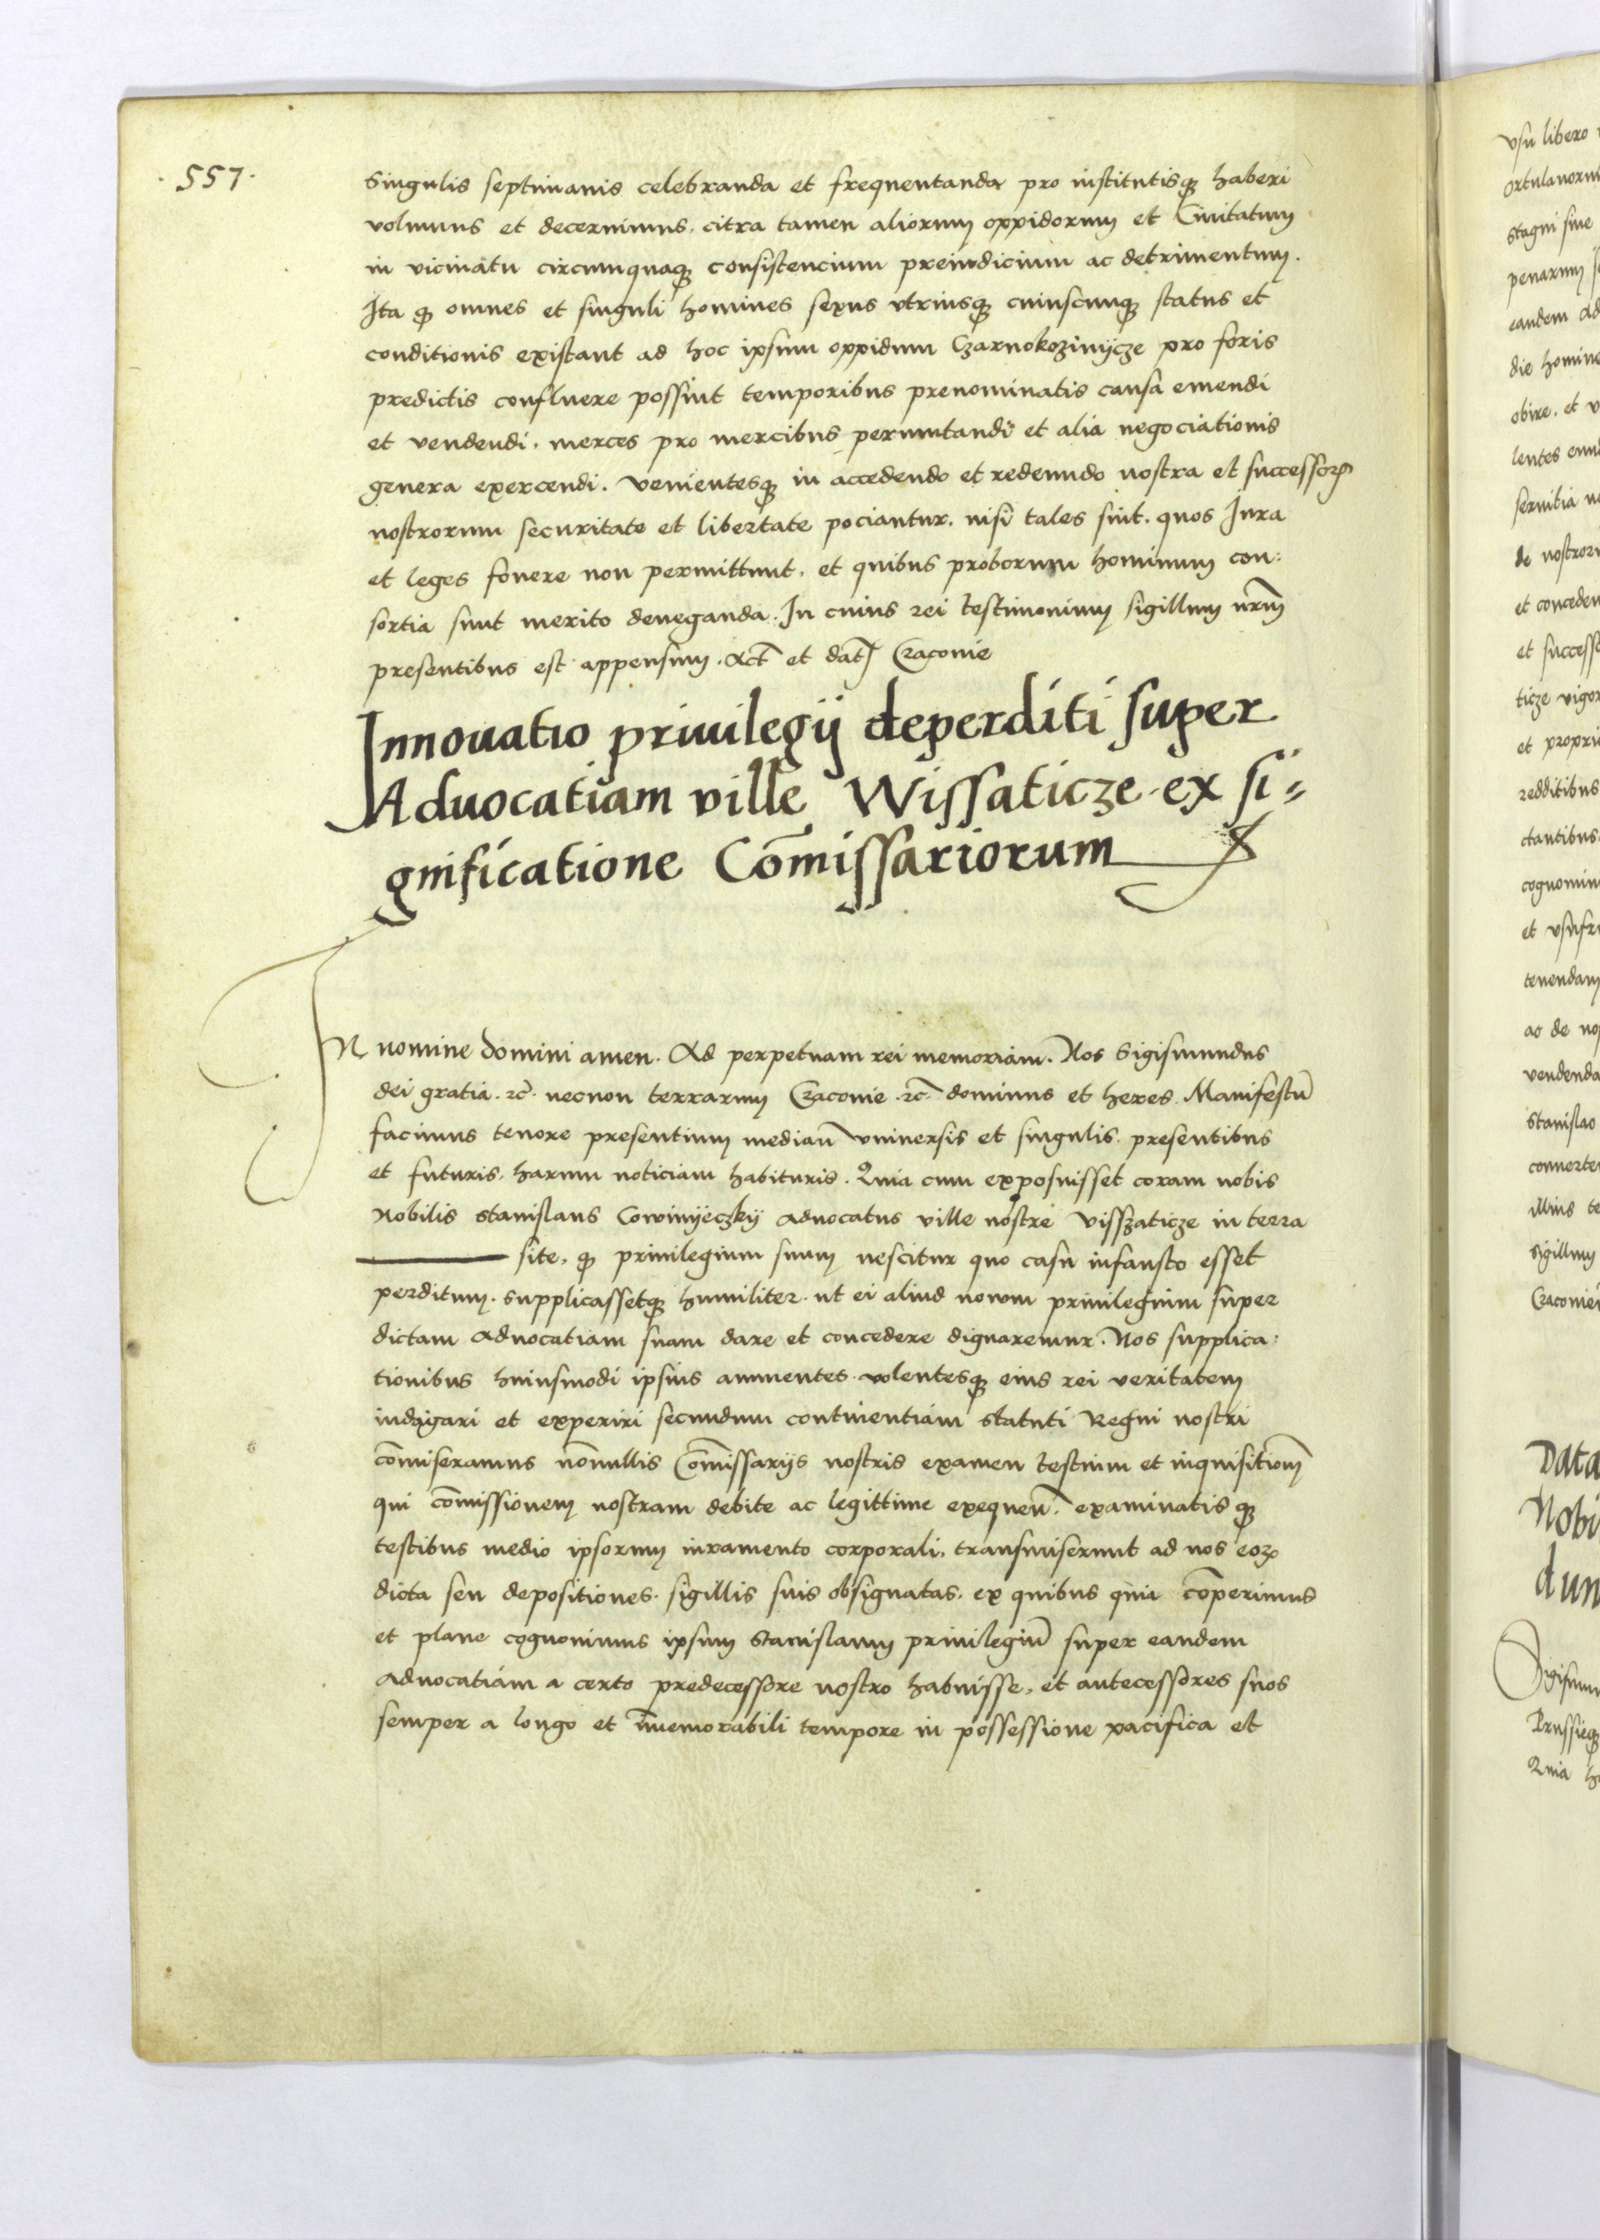 . 557 .
singulis septimanis celebranda et frequentanda pro institutisqꝫ haberi
volumus et decernimus. citra tamen aliorum oppidorum et Civitatum
in vicinatu circumquaqꝫ consistencium preiudicium ac detrimentum.
Ita qꝫ omnes et singuli homines sexus utriusqꝫ cuiuscunqꝫ status et
conditionis existant ad hoc ipsum oppidum Czarnokozinijcze pro foris
predictis confluere possint temporibus prenominatis causa emendi
et vendendi. merces pro mercibus permutandi et alia negociationis
genera exercendi. venientesqꝫ in accedendo et redeundo nostra et successorꝫ
nostrorum securitate et libertate pociantur. nisi tales sint. quos Iura
et leges fovere non permittunt. et quibus proborum hominum con:
sortia sunt merito deneganda. In cuius rei testimonium sigillum nr̄m
presentibus est appensum. Act̄ et dat̄ Cracovie
Innouatio priuilegij deperditi super
Aduocatiam ville Wissaticze ex si=
gnificatione Com̄issariorum
In nomine domini amen. Ad perpetuam rei memoriam. Nos Sigismundus
dei gratia. ⁊c̄. necnon terrarum Cracovie. ⁊c̄. dominus et heres. Manifestū
facimus tenore presentium median̄ universis et singulis. presentibus
et futuris. harum noticiam habituris. Quia cum exposuisset coram nobis
Nobilis Stanislaus Cowinijeczkij advocatus ville nostre Visszaticze in terra
——— site. qꝫ privilegium suum nescitur quo casu infausto esset
perditum. supplicassetqꝫ humiliter. ut ei aliud novum privilegium super
dictam advocatiam suam dare et concedere dignaremur. Nos supplica:
tionibus huiusmodi ipsius annuentes. volentesqꝫ eius rei veritatem
indagari et experiri secundum continentiam statuti Regni nostri
com̄iseramus non̄ullis Com̄issarijs nostris examen testium et inquisitionē
qui com̄issionem nostram debite ac legittime exequen̄. examinatis qꝫ
testibus medio ipsorum iuramento corporali. transmiserunt ad nos eorꝫ
dicta seu depositiones. sigillis suis obsignatas. ex quibus quia cōperimus
et plane cognovimus ipsum Stanislaum privilegiū super eandem
advocatiam a certo predecessore nostro habuisse. et antecessores suos
semper a longo et im̄emorabili tempore in possessione pacifica et